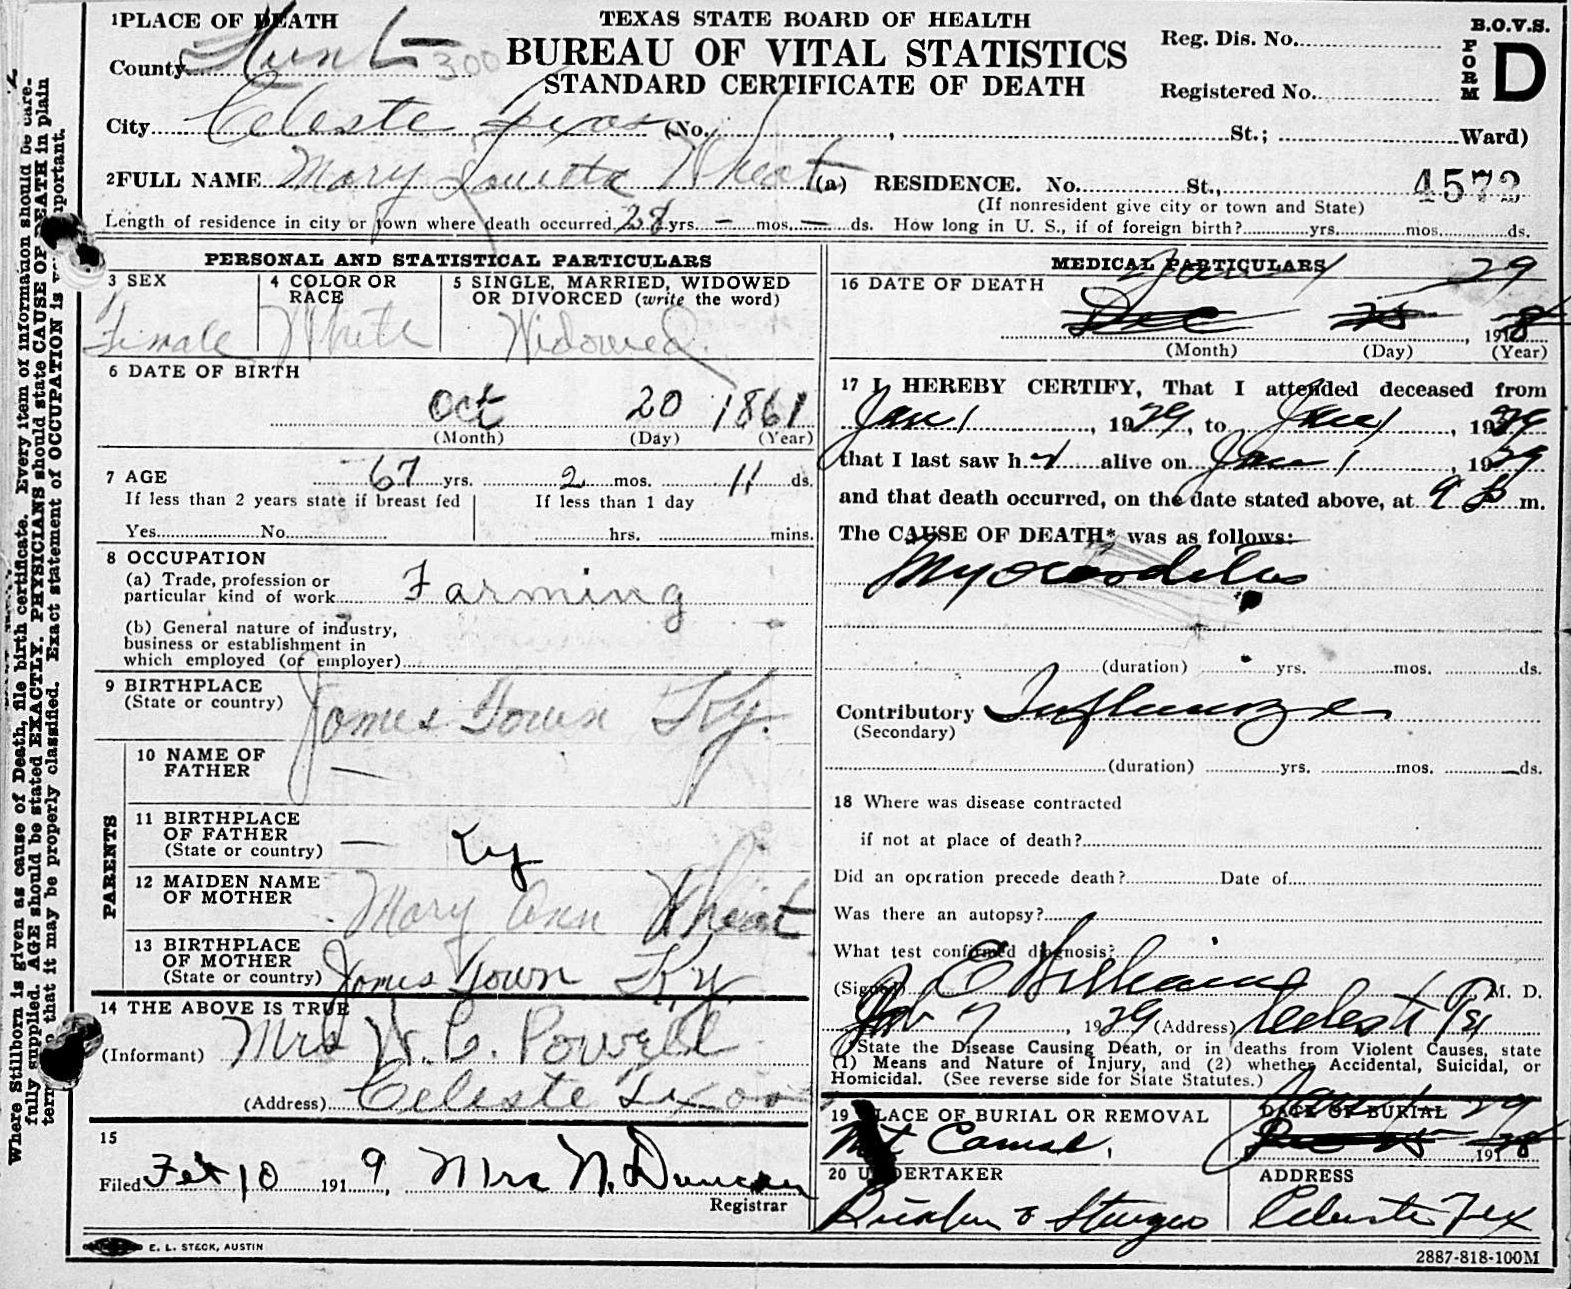 1 PLACE OF DEATH
TEXAS STATE BOARD OF HEALTH
BUREAU OF VITAL STATISTICS
STANDARD CERTIFICATE OF DEATH
B.O.V.S.
FORM D
Reg. Dis. No.
Registered No.
County Hunt 300
City Celeste Texas (No. , St.; Ward)
2 FULL NAME Mary Louetta Wheat (a) RESIDENCE. No. St., 4573
(If nonresident give city or town and State)
Length of residence in city or town where death occurred 28 yrs. – mos. – ds. How long in U. S., if of foreign birth? yrs. mos. ds.
PERSONAL AND STATISTICAL PARTICULARS
3 SEX
Female
4 COLOR OR RACE
White
5 SINGLE, MARRIED, WIDOWED
OR DIVORCED (write the word)
Widowed
6 DATE OF BIRTH
Oct 20 1861
(Month) (Day) (Year)
7 AGE 67 yrs. 2 mos. 11 ds.
If less than 2 years state if breast fed If less than 1 day
Yes No hrs. mins.
8 OCCUPATION
(a) Trade, profession or
particular kind of work Farming
(b) General nature of industry,
business or establishment in
which employed (or employer)
9 BIRTHPLACE
(State or country) James Town Ky.
PARENTS
10 NAME OF
FATHER —
11 BIRTHPLACE
OF FATHER
(State or country) — Ky
12 MAIDEN NAME
OF MOTHER Mary Ann Wheat
13 BIRTHPLACE
OF MOTHER
(State or country) James Town Ky.
14 THE ABOVE IS TRUE
(Informant) Mrs W. C. Powell
(Address) Celeste Texas
15
Filed Feb 10 1919, Mrs N. Duncan
Registrar
MEDICAL PARTICULARS
16 DATE OF DEATH Jan 1 29
Dec 25, 1918
(Month) (Day) (Year)
17 I HEREBY CERTIFY, That I attended deceased from
Jan 1, 1929, to Jan 1, 1929
that I last saw h r alive on Jan 1, 1929
and that death occurred, on the date stated above, at 9 P m.
The CAUSE OF DEATH* was as follows:
Myocarditis
(duration) yrs. mos. ds.
Contributory Influenza
(Secondary)
(duration) yrs. mos. ds.
18 Where was disease contracted
if not at place of death?
Did an operation precede death? Date of
Was there an autopsy?
What test confirmed diagnosis?
(Signed) E Williams M. D.
7, 1929 (Address) Celeste Tex
*State the Disease Causing Death, or in deaths from Violent Causes, state
(1) Means and Nature of Injury, and (2) whether Accidental, Suicidal, or
Homicidal. (See reverse side for State Statutes.)
19 PLACE OF BURIAL OR REMOVAL
Mt Carmel.
DATE OF BURIAL
Jan 1 29
Dec 25 1918
20 UNDERTAKER
& Sturges
ADDRESS
Celeste Tex
E. L. STECK, AUSTIN
2887-818-100M
Where Stillborn is given as cause of Death, file birth certificate. Every item of information should be care-
fully supplied. AGE should be stated EXACTLY. PHYSICIANS should state CAUSE OF DEATH in plain
that it may be properly classified. Exact statement of OCCUPATION is